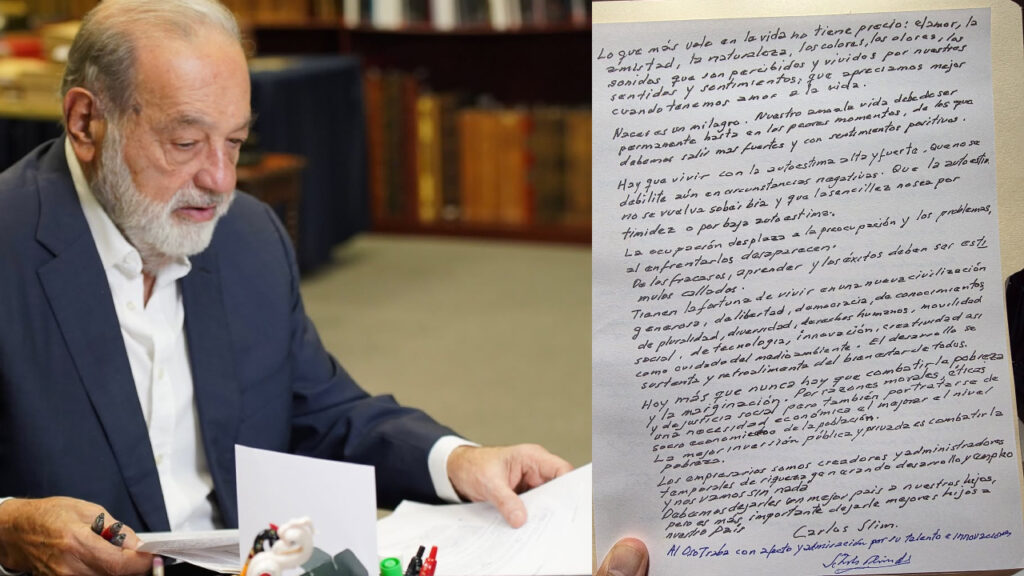 Lo que más vale en la vida no tiene precio: el amor, la
amistad, la naturaleza, los colores, los olores, los
sonidos que son percibidos y vividos por nuestros
sentidos y sentimientos; que apreciamos mejor
cuando tenemos amor a la vida.
Nacer es un milagro. Nuestro amor a la vida debe de ser
permanente hasta en los peores momentos, de los que
debemos salir mas fuertes y con sentimientos positivos.
Hay que vivir con la autoestima alta y fuerte. Que no se
debilite aún en circunstancias negativas. Que la autoestima
no se vuelva soberbia y que la sencillez no sea por
timidez o por baja autoestima.
La ocupación desplaza a la preocupación y los problemas,
al enfrentarlos desaparecen.
De los fracasos, aprender y los éxitos deben ser estí
mulos callados.
Tienen la fortuna de vivir en una nueva civilización
generosa, de libertad, democracia, de conocimientos,
de pluralidad, diversidad, derechos humanos, movilidad
social, de tecnología, innovación, creatividad así
como cuidado del medio ambiente. El desarrollo se
sustenta y retroalimenta del bienestar de todos.
Hoy más que nunca hay que combatir la pobreza
y la marginación. Por razones morales, éticas
y de justicia social pero también por tratarse de
una necesidad económica el mejorar el nivel
socio economico de la población.
La mejor inversión pública y privada es combatir la
pobreza.
Los empresarios somos creadores y administradores
temporales de riqueza generando desarrollo y empleo
y nos vamos sin nada
Debemos dejarles un mejor país a nuestros hijos,
pero es más importante dejarle mejores hijos a
nuestro País
Carlos Slim.
Al con afecto y admiración por su talento e Innovaciones